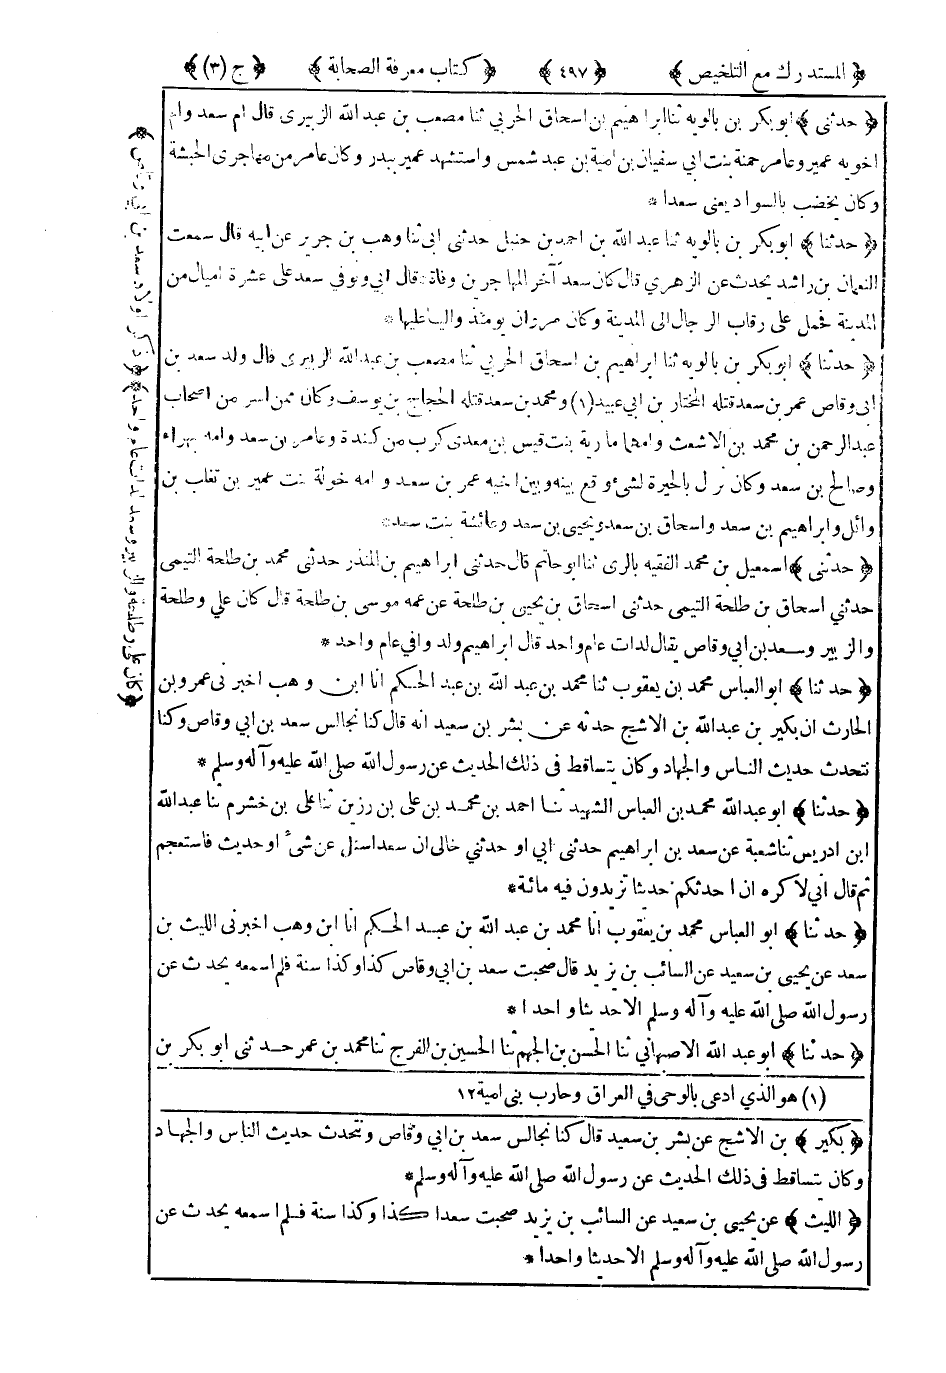 ﴿ المستدرك مع التلخيص ﴾ ﴿ ٤٩٧ ﴾ ﴿ كتاب معرفة الصحابة ﴾ ﴿ ج (٣) ﴾
﴿ حدثنى ﴾ ابوبكر بن بالويه ثنا ابراهيم بن اسحاق الحربي ثنا مصعب بن عبد الله الزبيرى قال ام سعد وام
اخويه عمير وعامر حمنة بنت ابي سفيان بن امية بن عبد شمس واستشهد عمير ببدر وكان عامر من مهاجرى الحبشة
وكان يخضب بالسواد يعنى سعدا *
﴿ حدثنا ﴾ ابوبكر بن بالويه ثنا عبد الله بن احمد بن حنبل حدثنى ابى ثنا وهب بن جرير عن ابيه قال سمعت
النعمان بن راشد يحدث عن الزهري قال كان سعد آخر المهاجرين وفاة قال ابي وتوفي سعد على عشرة اميال من
المدينة فحمل على رقاب الرجال الى المدينة وكان مروان يومئذ واليا عليها *
﴿ حدثنا ﴾ ابوبكر بن بالويه ثنا ابراهيم بن اسحاق الحربي ثنا مصعب بن عبد الله الزبيرى قال ولد سعد بن
ابى وقاص عمر بن سعد قتله المختار بن ابي عبيد (١) ومحمد بن سعد قتله الحجاج بن يوسف وكان ممن اسر من اصحاب
عبد الرحمن بن محمد بن الاشعث وامهما مارية بنت قيس بن معدى كرب من كندة وعامر بن سعد وامه بهراء
وصالح بن سعد وكان نزل بالحيرة لشئ وقع بينه وبين اخيه عمر بن سعد وامه خولة بنت عمير بن تغلب بن
وائل وابراهيم بن سعد واسحاق بن سعد ويحيى بن سعد وعائشة بنت سعد *
﴿ حدثنى ﴾ اسمعيل بن محمد الفقيه بالرى ثنا ابو حاتم قال حدثنى ابراهيم بن المنذر حدثنى محمد بن طلحة التيمى
حدثني اسحاق بن طلحة التيمى حدثنى اسحاق بن يحيى بن طلحة عن عمه موسى بن طلحة قال كان علي وطلحة
والزبير وسعد بن ابي وقاص يقال لدات عام واحد قال ابراهيم ولد وافي عام واحد *
﴿ حدثنا ﴾ ابو العباس محمد بن يعقوب ثنا محمد بن عبد الله بن عبد الحكم انا ابن وهب اخبرنى عمرو بن
الحارث ان بكير بن عبدالله بن الاشج حدثه عن بشر بن سعيد انه قال كنا نجالس سعد بن ابي وقاص وكنا
نتحدث حديث الناس والجهاد وكان يتساقط فى ذلك الحديث عن رسول الله صلى الله عليه وآله وسلم *
﴿ حدثنا ﴾ ابو عبد الله محمد بن العباس الشهيد ثنا احمد بن محمد بن على بن رزين ثنا على بن خشرم ثنا عبدالله
ابن ادريس ثنا شعبة عن سعد بن ابراهيم حدثنى ابي او حدثني خالى ان سعدا سئل عن شئ او حديث فاستعجم
ثم قال انى لا كره ان احدثكم حديثا تزيدون فيه مائة *
﴿ حدثنا ﴾ ابو العباس محمد بن يعقوب انا محمد بن عبد الله بن عبد الحكم انا ابن وهب اخبرنى الليث بن
سعد عن يحيى بن سعيد عن السائب بن يزيد قال صحبت سعد بن ابي وقاص كذا وكذا سنة فلم اسمعه يحدث عن
رسول الله صلى الله عليه وآله وسلم الا حديثا واحدا *
﴿ حدثنا ﴾ ابو عبد الله الاصبهاني ثنا الحسن بن الجهم ثنا الحسين بن الفرج ثنا محمد بن عمر حدثنى ابو بكر بن
(١) هو الذي ادعى بالوحى في العراق وحارب بنى امية ١٢
﴿ بكير ﴾ بن الاشج عن بشر بن سعيد قال كنا نجالس سعد بن ابي وقاص ونتحدث حديث الناس والجهاد
وكان يتساقط فى ذلك الحديث عن رسول الله صلى الله عليه وآله وسلم *
﴿ الليث ﴾ عن يحيى بن سعيد عن السائب بن يزيد صحبت سعدا كذا وكذا سنة فلم اسمعه يحدث عن
رسول الله صلى الله عليه وآله وسلم الا حديثا واحدا *
﴿ ذكر اولاد سعد بن ابي وقاص ﴾
﴿ كان على وطلحة والزبير وسعد لدات عام واحد ﴾